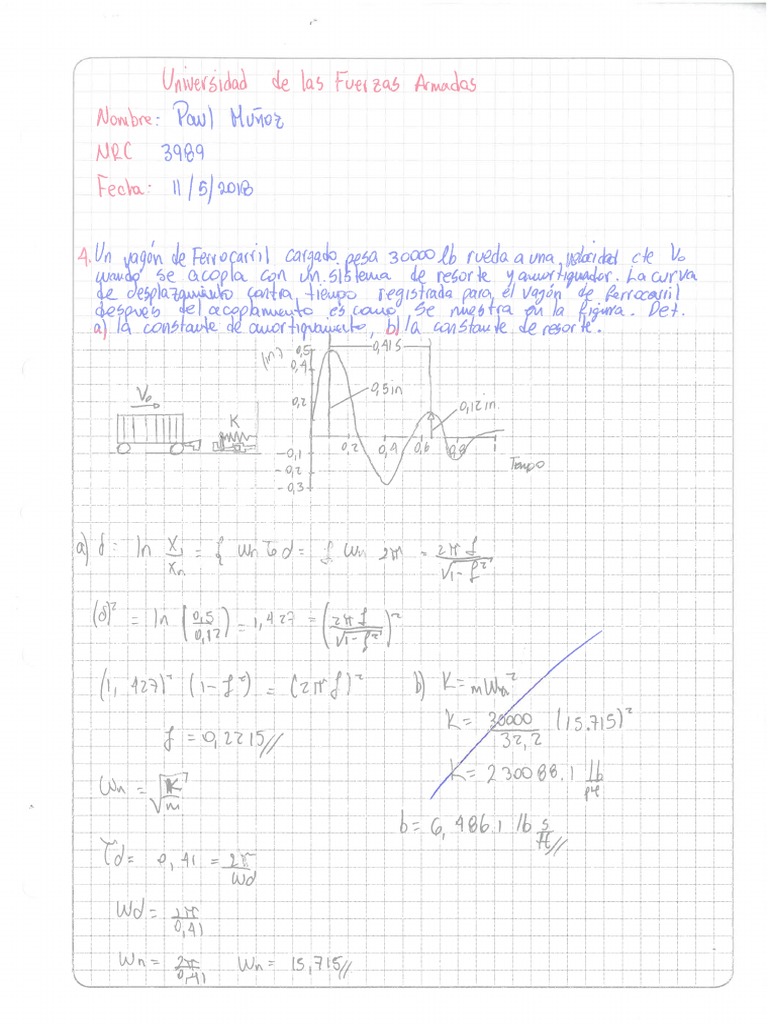 Universidad de las Fuerzas Armadas
Nombre: Paul Muñoz
NRC 3989
Fecha: 11/5/2018
4. Un vagón de Ferrocarril cargado pesa 30000 lb rueda a una velocidad cte Vo
cuando se acopla con un sistema de resorte y amortiguador. La curva
de desplazamiento contra tiempo registrada para el vagón de ferrocarril
después del acoplamiento es como se muestra en la figura. Det.
a) la constante de amortiguamiento, b) la constante de resorte.
(in)
0,5
0,4
0,2
-0,1
-0,2
-0,3
0,41s
0,5in
0,12in
0,2 0,4 0,6 0,8 1
Tiempo
Vo
K
a) δ = ln x₁/xₙ = ξ wn τd = ξ wn 2π = 2πξ/√1-ξ²
(δ)² = ln (0,5/0,12) = 1,427 = (2πξ/√1-ξ²)²
(1,427)² (1-ξ²) = (2πξ)²
ξ = 0,2215//
wn = √K/m
τd = 0,41 = 2π/wd
wd = 2π/0,41
wn = 2π/0,41 wn = 15,715//
b) K = mwn²
K = 30000/32,2 (15.715)²
K = 230088.1 lb/pie
b = 6,486.1 lb s/ft//